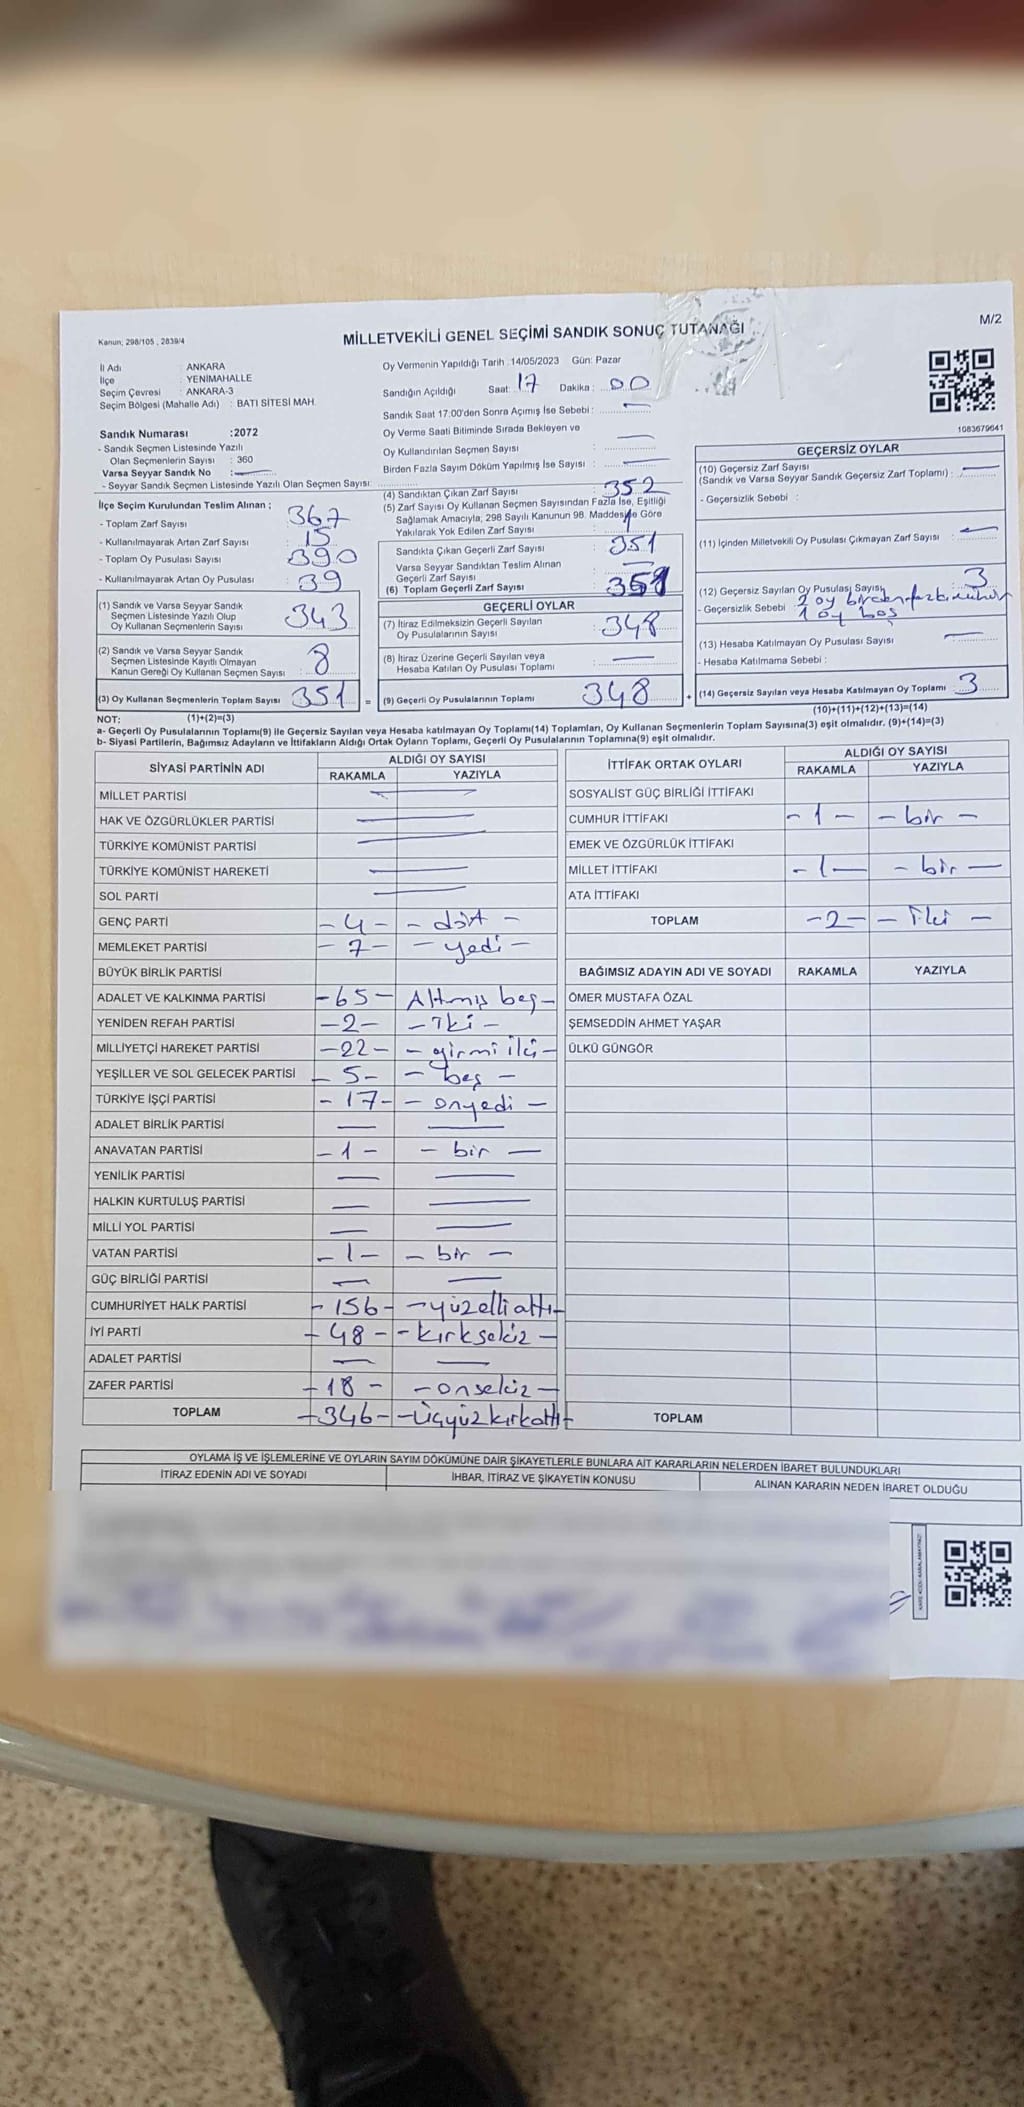 M/2
Kanun; 298/105 , 2839/4
MİLLETVEKİLİ GENEL SEÇİMİ SANDIK SONUÇ TUTANAĞI
İl Adı : ANKARA
İlçe : YENİMAHALLE
Seçim Çevresi : ANKARA-3
Seçim Bölgesi (Mahalle Adı) : BATI SİTESİ MAH.
Sandık Numarası :2072
- Sandık Seçmen Listesinde Yazılı
Olan Seçmenlerin Sayısı : 360
Varsa Seyyar Sandık No : —
- Seyyar Sandık Seçmen Listesinde Yazılı Olan Seçmen Sayısı:
Oy Vermenin Yapıldığı Tarih :14/05/2023 Gün: Pazar
Sandığın Açıldığı Saat: 17 Dakika : 00
Sandık Saat 17:00'den Sonra Açımış İse Sebebi : —
Oy Verme Saati Bitiminde Sırada Bekleyen ve
Oy Kullandırılan Seçmen Sayısı : —
Birden Fazla Sayım Döküm Yapılmış İse Sayısı : —
1083679641
İlçe Seçim Kurulundan Teslim Alınan ;
- Toplam Zarf Sayısı : 367
- Kullanılmayarak Artan Zarf Sayısı : 15
- Toplam Oy Pusulası Sayısı : 390
- Kullanılmayarak Artan Oy Pusulası : 39
(1) Sandık ve Varsa Seyyar Sandık
Seçmen Listesinde Yazılı Olup
Oy Kullanan Seçmenlerin Sayısı : 343
(2) Sandık ve Varsa Seyyar Sandık
Seçmen Listesinde Kayıtlı Olmayan
Kanun Gereği Oy Kullanan Seçmen Sayısı : 8
(3) Oy Kullanan Seçmenlerin Toplam Sayısı : 351 =
(4) Sandıktan Çıkan Zarf Sayısı : 352
(5) Zarf Sayısı Oy Kullanan Seçmen Sayısından Fazla İse, Eşitliği
Sağlamak Amacıyla, 298 Sayılı Kanunun 98. Maddesine Göre
Yakılarak Yok Edilen Zarf Sayısı : 1
Sandıkta Çıkan Geçerli Zarf Sayısı : 351
Varsa Seyyar Sandıktan Teslim Alınan
Geçerli Zarf Sayısı : —
(6) Toplam Geçerli Zarf Sayısı : 351
GEÇERLİ OYLAR
(7) İtiraz Edilmeksizin Geçerli Sayılan
Oy Pusulalarının Sayısı : 348
(8) İtiraz Üzerine Geçerli Sayılan veya
Hesaba Katılan Oy Pusulası Toplamı : —
(9) Geçerli Oy Pusulalarının Toplamı : 348 +
GEÇERSİZ OYLAR
(10) Geçersiz Zarf Sayısı
(Sandık ve Varsa Seyyar Sandık Geçersiz Zarf Toplamı) : —
- Geçersizlik Sebebi :
(11) İçinden Milletvekili Oy Pusulası Çıkmayan Zarf Sayısı : —
(12) Geçersiz Sayılan Oy Pusulası Sayısı : 3
- Geçersizlik Sebebi : 2 oy birden fazla mühür
1 oy boş
(13) Hesaba Katılmayan Oy Pusulası Sayısı : —
- Hesaba Katılmama Sebebi :
(14) Geçersiz Sayılan veya Hesaba Katılmayan Oy Toplamı : 3
NOT: (1)+(2)=(3)
(10)+(11)+(12)+(13)=(14)
a- Geçerli Oy Pusulalarının Toplamı(9) ile Geçersiz Sayılan veya Hesaba katılmayan Oy Toplamı(14) Toplamları, Oy Kullanan Seçmenlerin Toplam Sayısına(3) eşit olmalıdır. (9)+(14)=(3)
b- Siyasi Partilerin, Bağımsız Adayların ve İttifakların Aldığı Ortak Oyların Toplamı, Geçerli Oy Pusulalarının Toplamına(9) eşit olmalıdır.
SİYASİ PARTİNİN ADI ALDIĞI OY SAYISI
RAKAMLA YAZIYLA
MİLLET PARTİSİ — —
HAK VE ÖZGÜRLÜKLER PARTİSİ — —
TÜRKİYE KOMÜNİST PARTİSİ — —
TÜRKİYE KOMÜNİST HAREKETİ — —
SOL PARTİ — —
GENÇ PARTİ - 4 - - dört -
MEMLEKET PARTİSİ - 7 - - yedi -
BÜYÜK BİRLİK PARTİSİ
ADALET VE KALKINMA PARTİSİ - 65 - Altmış beş -
YENİDEN REFAH PARTİSİ - 2 - - iki -
MİLLİYETÇİ HAREKET PARTİSİ - 22 - - yirmi iki -
YEŞİLLER VE SOL GELECEK PARTİSİ - 5 - - beş -
TÜRKİYE İŞÇİ PARTİSİ - 17 - - onyedi -
ADALET BİRLİK PARTİSİ — —
ANAVATAN PARTİSİ - 1 - - bir -
YENİLİK PARTİSİ — —
HALKIN KURTULUŞ PARTİSİ — —
MİLLİ YOL PARTİSİ — —
VATAN PARTİSİ - 1 - - bir -
GÜÇ BİRLİĞİ PARTİSİ — —
CUMHURİYET HALK PARTİSİ - 156 - - yüzelli altı -
İYİ PARTİ - 48 - - kırksekiz -
ADALET PARTİSİ — —
ZAFER PARTİSİ - 18 - - onsekiz -
TOPLAM - 346 - - Üçyüzkırkaltı -
İTTİFAK ORTAK OYLARI ALDIĞI OY SAYISI
RAKAMLA YAZIYLA
SOSYALİST GÜÇ BİRLİĞİ İTTİFAKI
CUMHUR İTTİFAKI - 1 - - bir -
EMEK VE ÖZGÜRLÜK İTTİFAKI
MİLLET İTTİFAKI - 1 - - bir -
ATA İTTİFAKI
TOPLAM - 2 - - İki -
BAĞIMSIZ ADAYIN ADI VE SOYADI RAKAMLA YAZIYLA
ÖMER MUSTAFA ÖZAL
ŞEMSEDDİN AHMET YAŞAR
ÜLKÜ GÜNGÖR
TOPLAM
OYLAMA İŞ VE İŞLEMLERİNE VE OYLARIN SAYIM DÖKÜMÜNE DAİR ŞİKAYETLERLE BUNLARA AİT KARARLARIN NELERDEN İBARET BULUNDUKLARI
İTİRAZ EDENİN ADI VE SOYADI İHBAR, İTİRAZ VE ŞİKAYETİN KONUSU ALINAN KARARIN NEDEN İBARET OLDUĞU